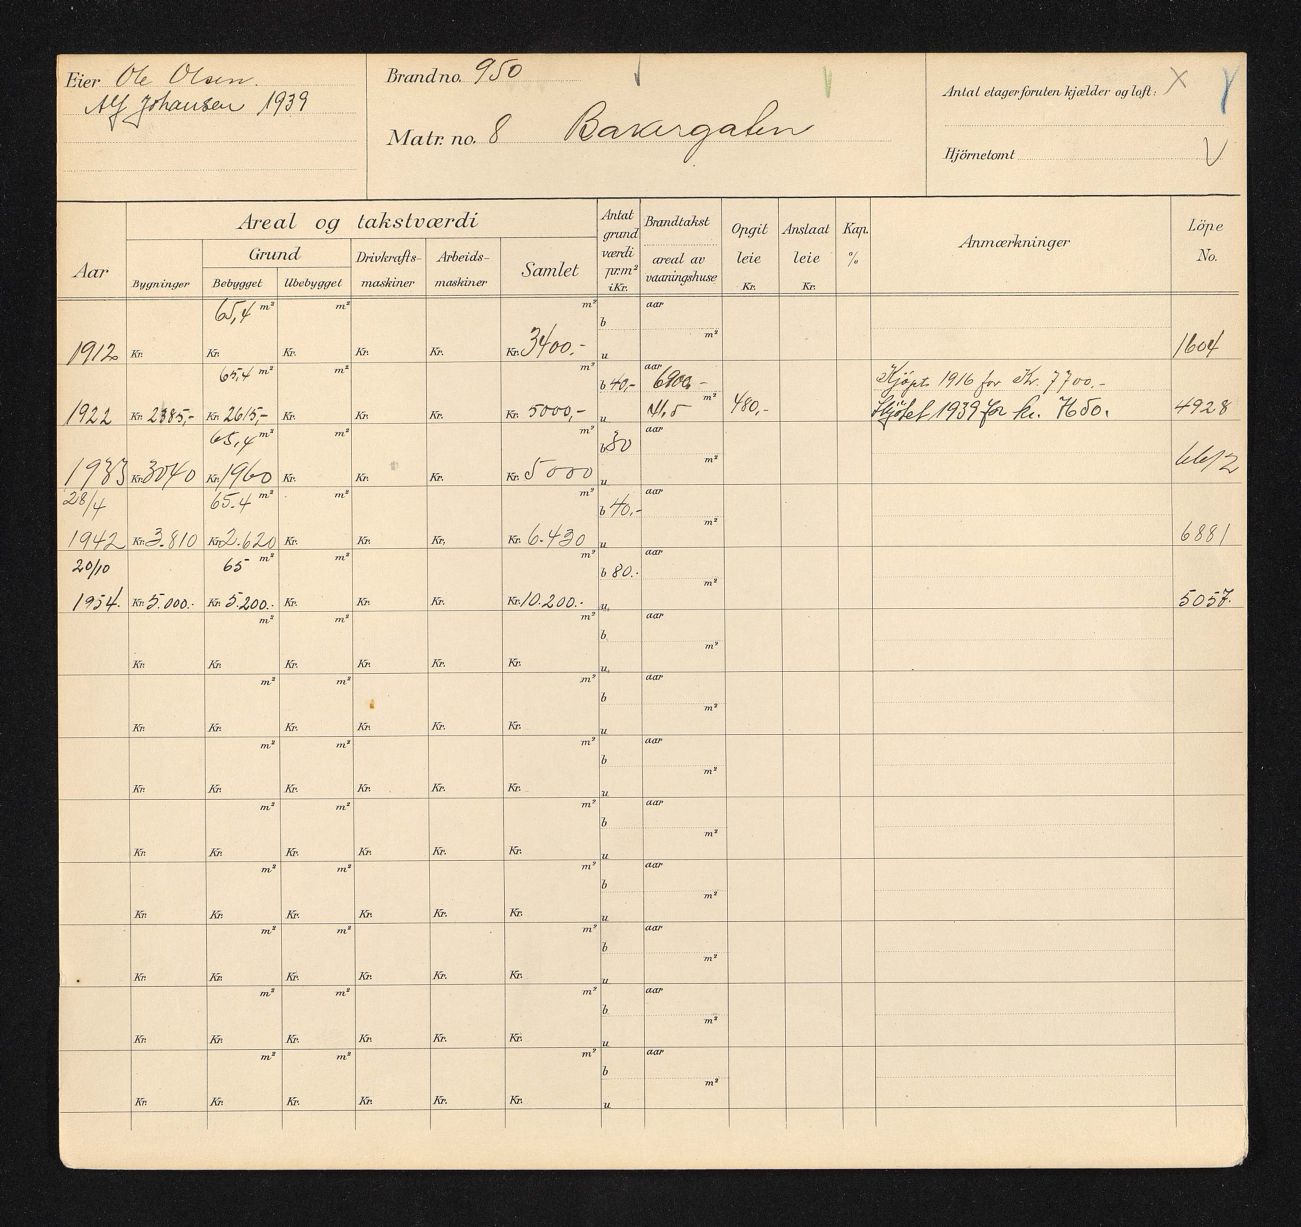 Eier Ole Olsen.
Alf Johansen 1939
Brand no. 950
Matr. no. 8 Bakergaten
Antal etager foruten kjælder og loft: X
Hjörnetomt
Aar
Areal og takstværdi
Bygninger
Grund
Bebygget Ubebygget
Drivkrafts-
maskiner
Arbeids-
maskiner
Samlet
Antat
grund
værdi
pr.m²
i Kr.
Brandtakst
areal av
vaaningshuse
Opgit
leie
Kr.
Anslaat
leie
Kr.
Kap.
%
Anmærkninger
Löpe
No.
65,4 m² m² m² b aar
1912 Kr. Kr. Kr. Kr. Kr. Kr. 3400.- u m² 1604
65,4 m² m² m² b 40,- aar 6900,- Kjöpt 1916 for Kr. 7700.-
1922 Kr. 2385,- Kr. 2615,- Kr. Kr. Kr. Kr. 5000,- u 41,5 m² 480,- Skjötet 1939 for kr. 7650. 4928
65,4 m² m² m² b 30 aar
1933 Kr. 3040 Kr. 1960 Kr. Kr. Kr. Kr. 5000 u m² 6612
28/4 65.4 m² m² m² b 40.- aar
1942 Kr. 3.810 Kr. 2.620 Kr. Kr. Kr. Kr. 6.430 u m² 6881
20/10 65 m² m² m² b 80.- aar
1954. Kr. 5.000.- Kr. 5.200.- Kr. Kr. Kr. Kr. 10.200.- u. m² 5057.
m² m² m² b aar
Kr. Kr. Kr. Kr. Kr. Kr. u m²
m² m² m² b aar
Kr. Kr. Kr. Kr. Kr. Kr. u m²
m² m² m² b aar
Kr. Kr. Kr. Kr. Kr. Kr. u m²
m² m² m² b aar
Kr. Kr. Kr. Kr. Kr. Kr. u m²
m² m² m² b aar
Kr. Kr. Kr. Kr. Kr. Kr. u m²
m² m² m² b aar
Kr. Kr. Kr. Kr. Kr. Kr. u m²
m² m² m² b aar
Kr. Kr. Kr. Kr. Kr. Kr. u m²
m² m² m² b aar
Kr. Kr. Kr. Kr. Kr. Kr. u m²